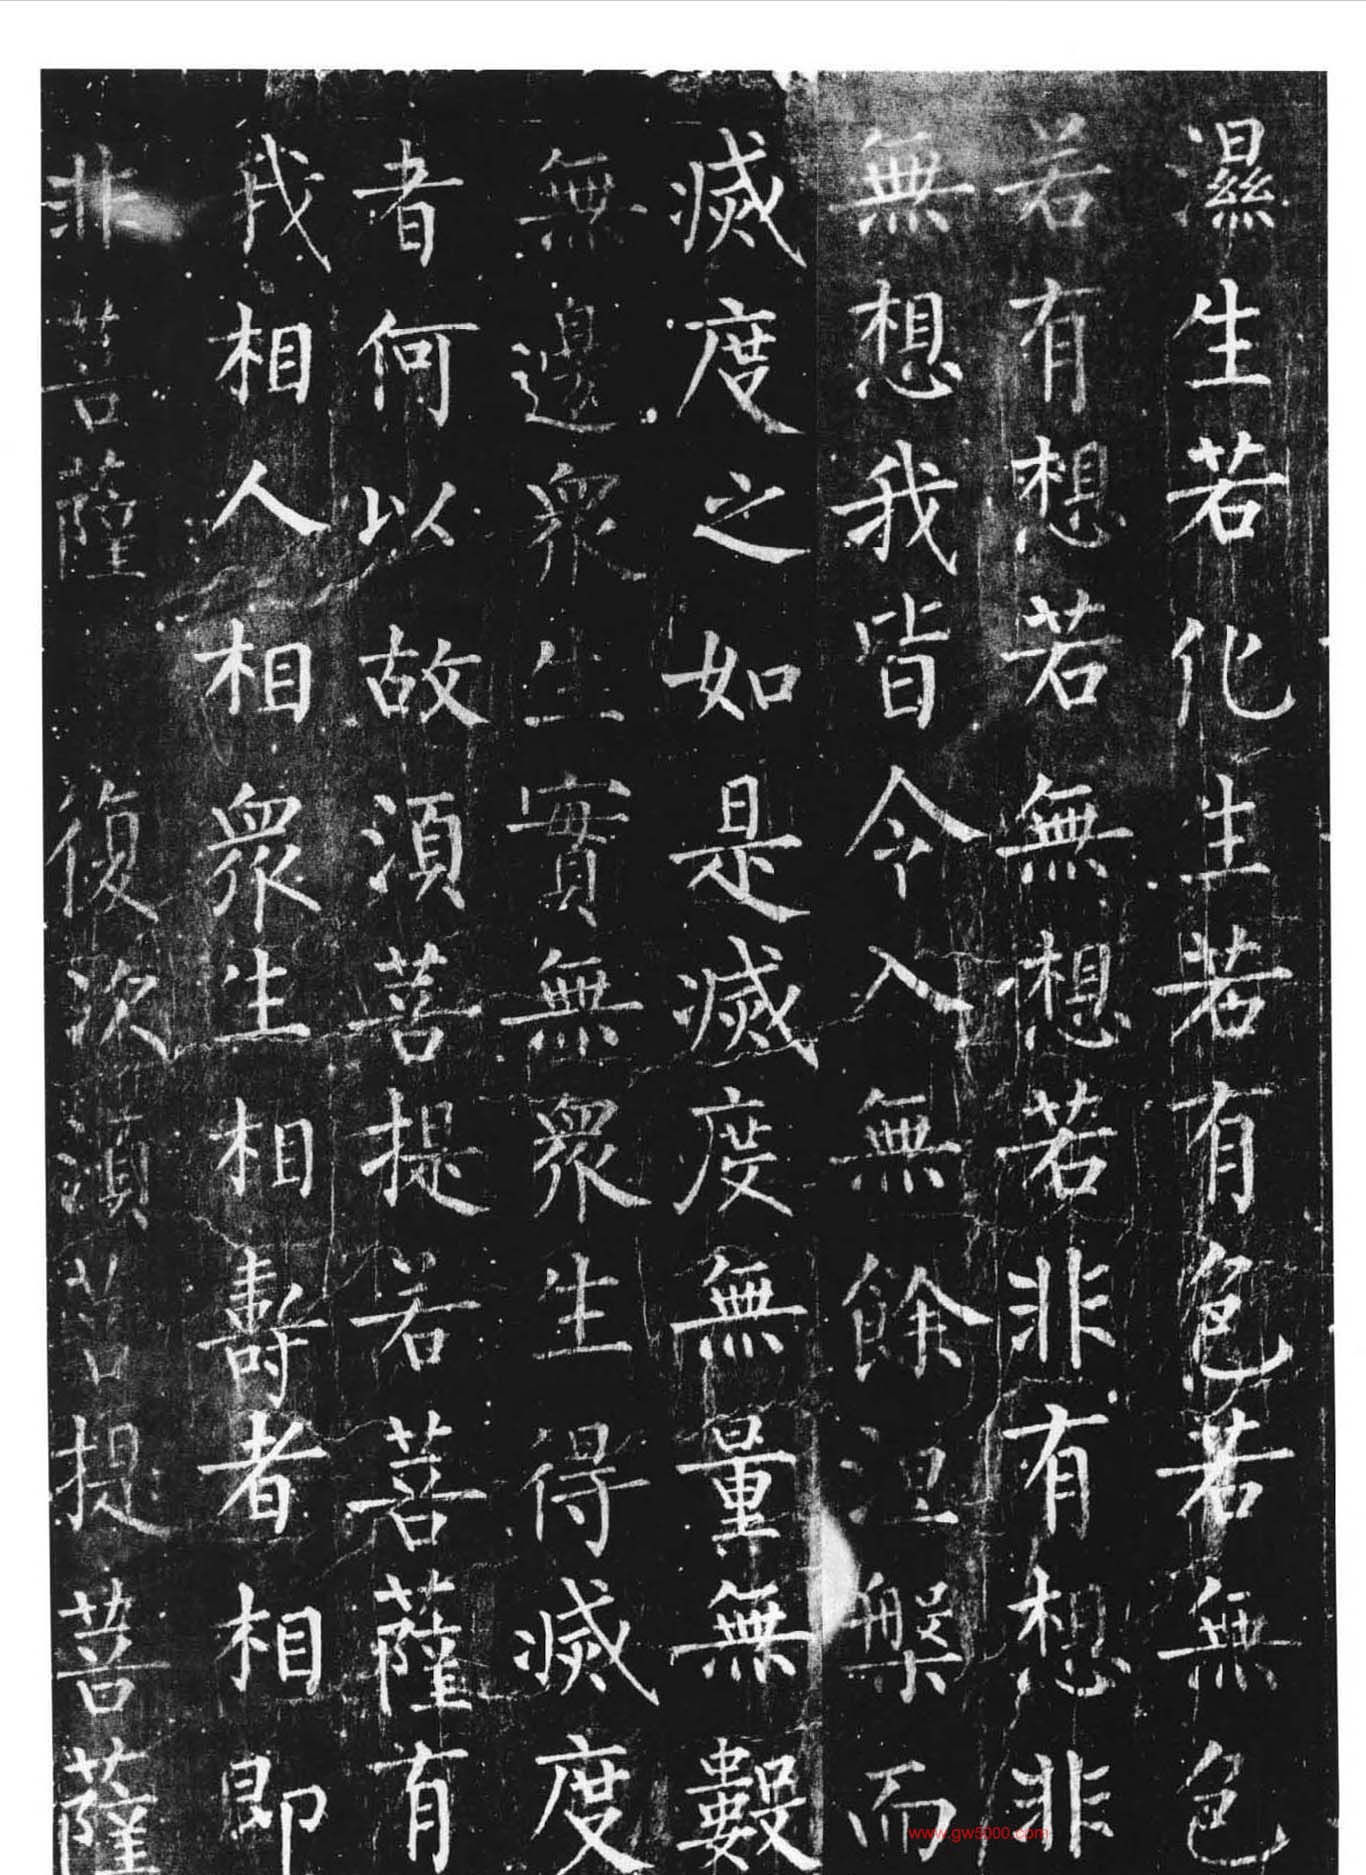 濕生若化生若有色若無色
若有想若無想若非有想非
無想我皆令入無餘涅槃而
滅度之如是滅度無量無數
無邊眾生實無眾生得滅度
者何以故須菩提若菩薩有
我相人相眾生相壽者相即
非菩薩 復次須菩提菩薩
www.gw5000.com